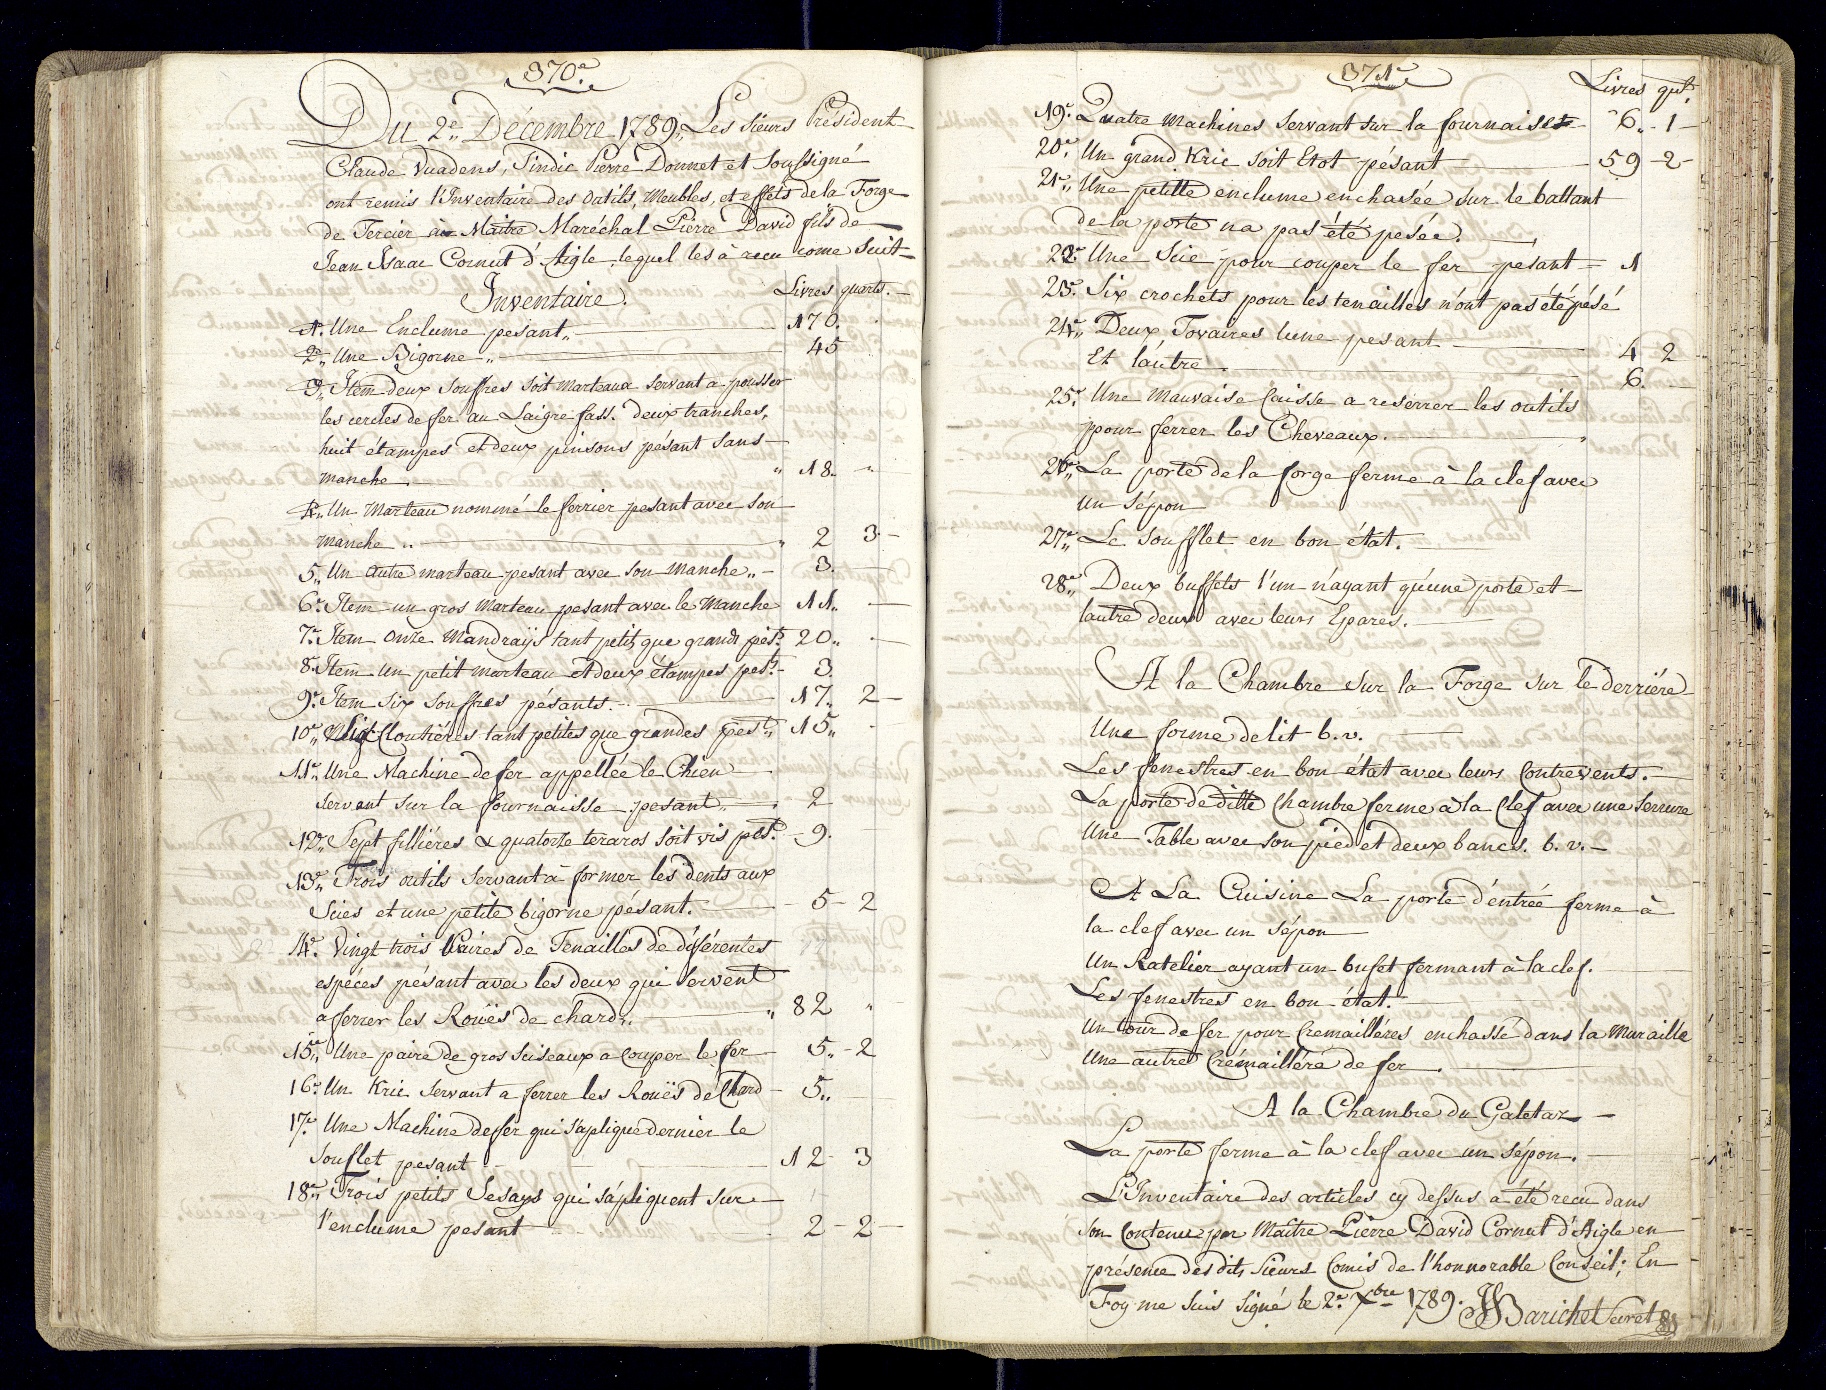 370.e
Du 2.e Décembre 1789, Les Sieurs Président
Claude Vuadens, Sindic Pierre Donnet et Soussigné
ont remis l'Inventaire des Outils, Meubles, et effets de la Forge
de Tercier au Maitre Maréchal Pierre David fils de
Jean Isaac Cornut d'Aigle, lequel les à recu come Suit
Inventaire. Livres quarts.
1.° Une Enclume pesant,, 170.
2.° Une Bigorne ,, 45
3.° Item deux souffres soit marteaux servant a pousser
les cercles de fer au Laigre fass. deux tranches,
huit étampes et deux pinsons pésant sans
manche. 18. ,,
4.° Un Marteau nommé le ferrier pesant avec son
manche ,, 2 3.
5,, Un autre marteau pesant avec son manche ,, 3.
6.e Item un gros Marteau pesant avec le Manche 11,,
7.e Item onze Mandraÿs tant petits que grands pést. 20,,
8.e Item un petit marteau et deux étampes pest. 3.
9.e Item six souffres pésants. 17. 2
10.e Cloutières tant petites que grandes pest. 15,,
11.e Une Machine de fer appellée le Chien
servant sur la fournaisse pesant. 2
12.e Sept filliéres & quatorze teraros soit vis pest. 9.
13.e Trois outils servant à former les dents aux
Scies et une petite bigorne pésant. 5 - 2
14.e Vingt trois Paires de Tenailles de diférentes
espéces pésant avec les deux qui servent
a ferrer les Roués de chard,, 82 ,,
15.e Une paire de gros Suiseaux a couper le fer 5,, - 2
16.e Un Kric servant a ferrer les Roués de Chard 5,,
17.e Une Machine de fer qui s'aplique dernier le
souflet pesant 12 - 3
18.e Trois petits Sesays qui s'apliquent sur
l'enclume pesant 2 - 2
371.e
Livres qut.
19.e Quatre Machines servant sur la fournaises 6,, - 1
20.e Un grand Kric soit Etot pésant 59 - 2
21.e Une petitte enclume enchasée sur le battant
de la porte na pas été pesée.
22.e Une Scie pour couper le fer pesant 1
23.e Six crochets pour les tenailles n'ont pas été pésé
24.e Deux Tovaires lune pesant 4 2
Et lautre. 6.
25.e Une Mauvaise Caisse a reserrer les outils
pour ferrer les Cheveaux.
26.e La porte de la forge ferme à la clef avec
un sépon
27.e Le soufflet en bon état.
28.e Deux buffets l'un n'ayant qu'une porte et
lautre deux avec leurs Epares.
A la Chambre sur la Forge sur le derriére
Une forme de lit b.v.
Les fenestres en bon état avec leurs Contrevents.
La porte de ditte Chambre ferme à la Clef avec une serrure
Une Table avec son pied et deux bancs. b.v.
A La Cuisine La porte d'éntrée ferme à
la clef avec un sépon
Un Ratelier ayant un bufet fermant à la clef.
Les fenestres en bon état.
Un tour de fer pour Cremailléres enchassé dans la Muraille
Une autre Crémaillére de fer.
A la Chambre du Galetaz
La porte ferme à la clef avec un sépon.
L'Inventaire des articles cy dessus a été recu dans
son Contenu par Maitre Pierre David Cornut d'Aigle en
présence des dits Sieurs Comis de l'honnorable Conseil; En
Foy me suis signé le 2.e Xbre 1789. Barichel Secret